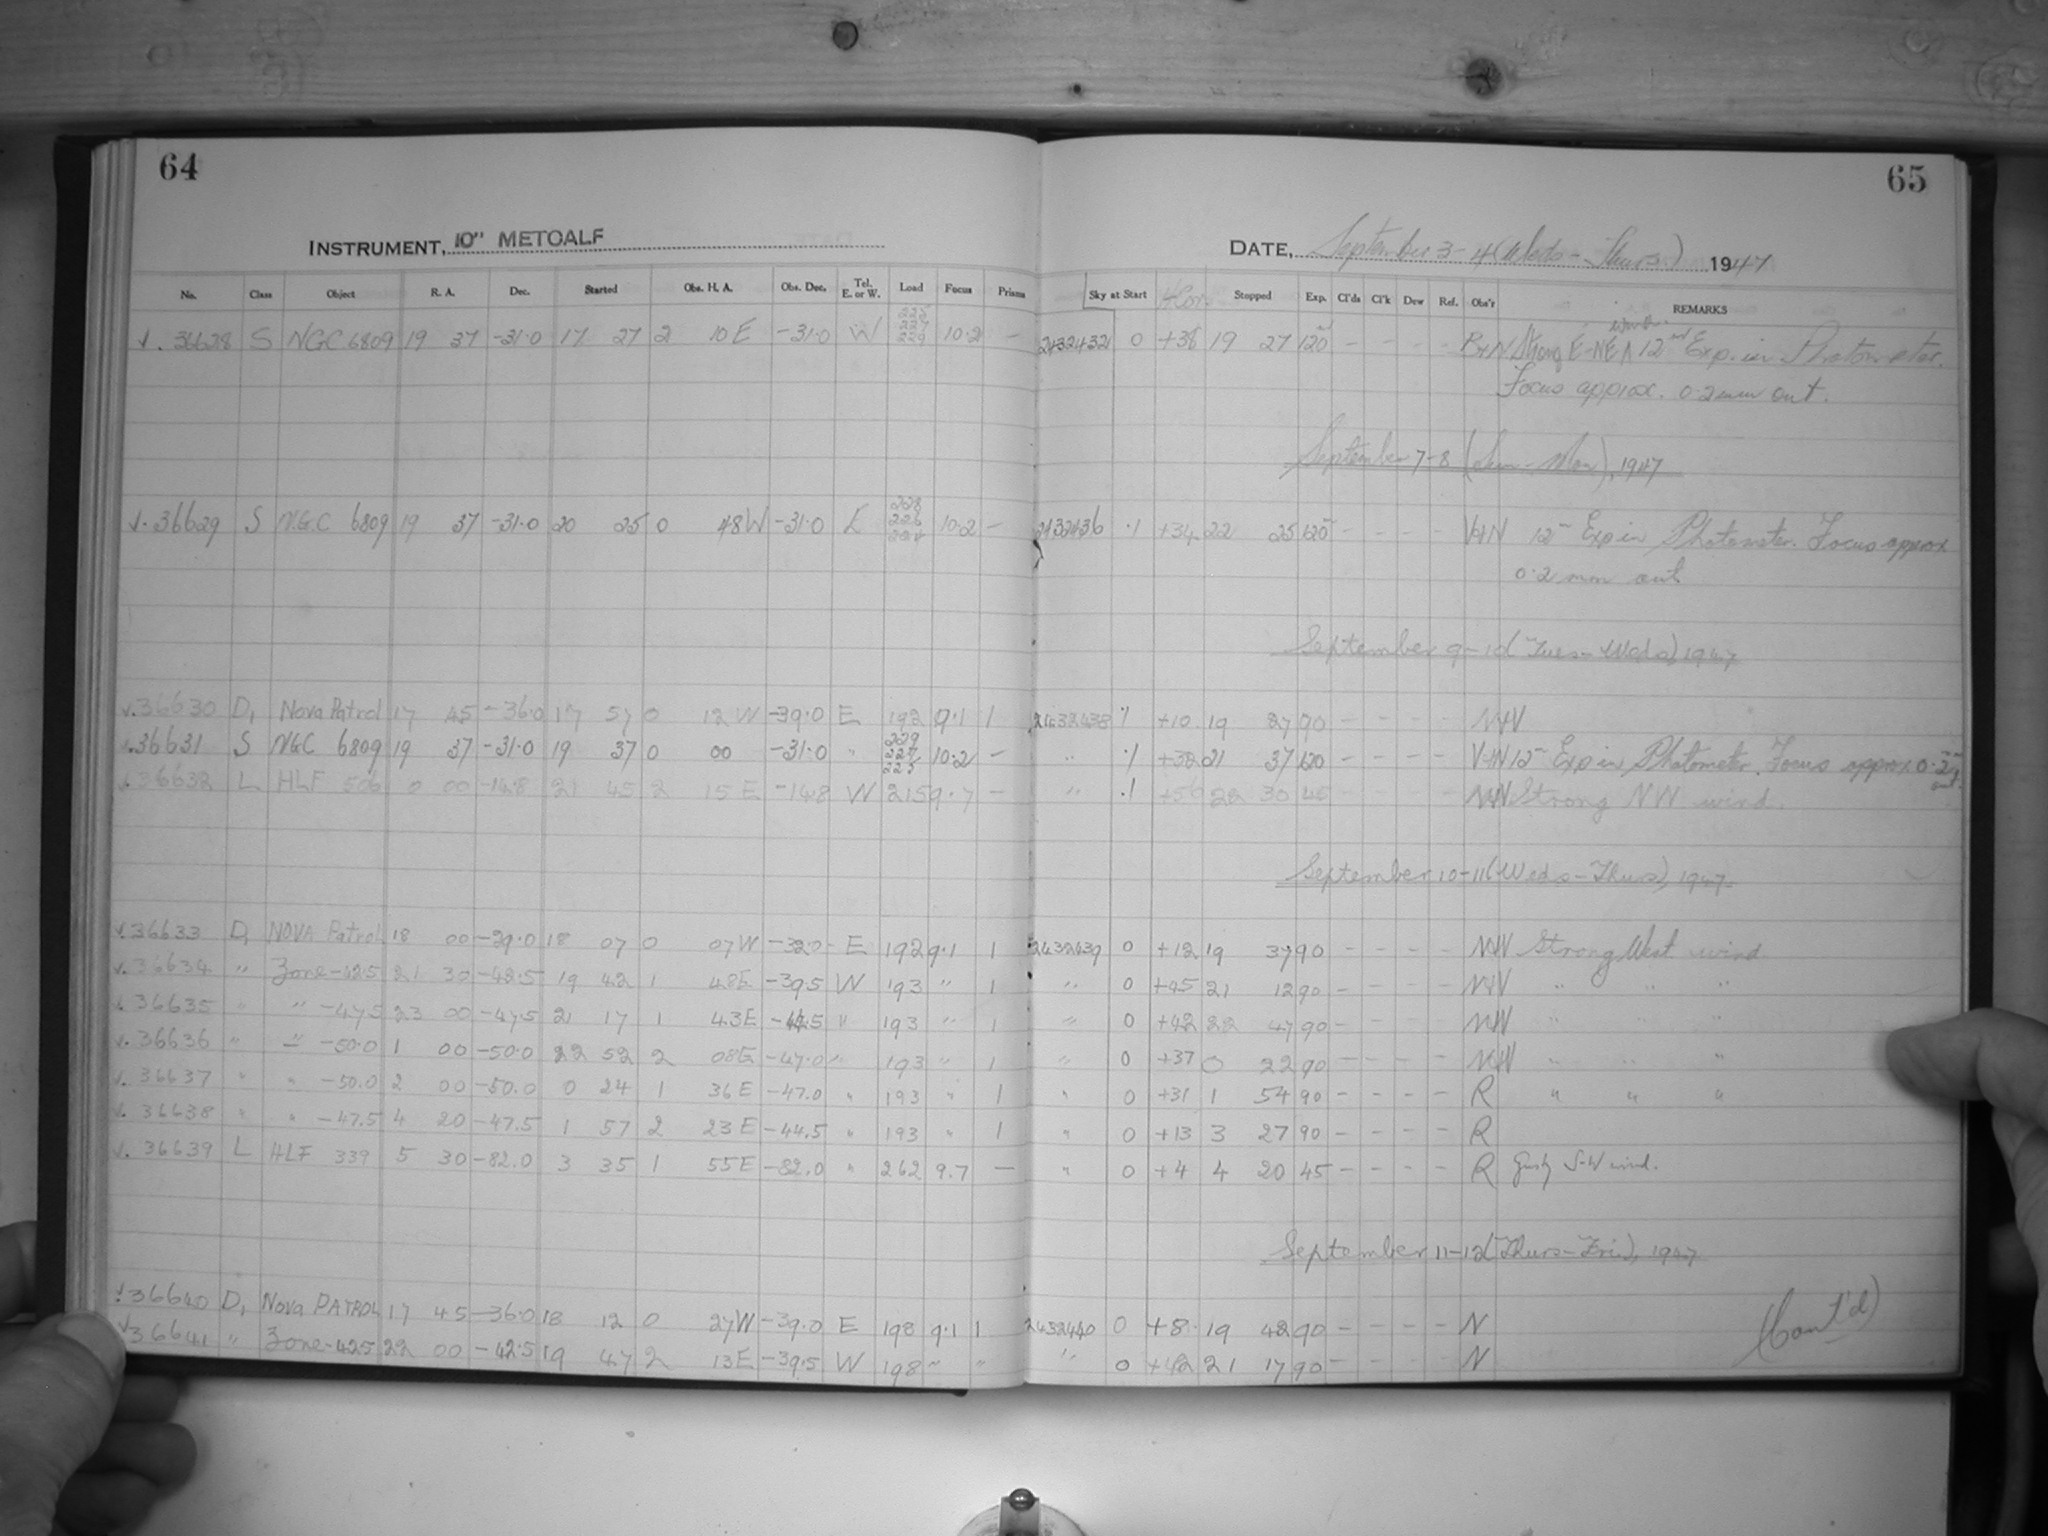 64
65
INSTRUMENT, 10" METCALF
DATE, September 3-4 (Weds-Thurs) 1947
No. Class Object R. A. Dec. Started Obs. H. A. Obs. Dec. Tel. E. or W. Load Focus Prisms Sky at Start Stopped Exp. Cl'ds Cl'k Dew Ref. Obs'r REMARKS
√. 36628 S NGC 6809 19 37 -31.0 17 27 2 10 E -31.0 W 10.2 - 2432432 0 +36 19 27 120 - - - - B+N Strong E-NE wind. 12 Exp. in Photometer.
Focus approx. 0.2mm out.
September 7-8 (Sun-Mon), 1947
√. 36629 S N.G.C 6809 19 37 -31.0 20 25 0 48W -31.0 E 228 226 224 10.2 - 2432436 .1 +34 22 25 120 - - - - V+N 12 Exp in Photometer. Focus approx
0.2 mm out
September 9-10 (Tues-Weds) 1947
√. 36630 D, Nova Patrol 17 45 -36.0 17 57 0 12 W -39.0 E 192 9.1 1 2432438 .1 +10 19 27 90 - - - - N+V
√. 36631 S NGC 6809 19 37 -31.0 19 37 0 00 -31.0 " 229 227 225 10.2 - " .1 +32 21 37 120 - - - - V+N 12 Exp in Photometer. Focus approx 0.2 out.
√. 36632 L HLF 506 0 00 -14.8 21 45 2 15 E -14.8 W 215 9.7 - " .1 +56 22 30 45 - - - - N+V Strong NW wind.
September 10-11 (Weds-Thurs), 1947.
√. 36633 D, NOVA Patrol 18 00 -29.0 18 07 0 07W -32.0 E 192 9.1 1 2432439 0 +12 19 37 90 - - - - N+V Strong West wind
√. 36634 " Zone -42.5 21 30 -42.5 19 42 1 48E -39.5 W 193 " 1 " 0 +45 21 12 90 - - - - N+V " " "
√. 36635 " " -47.5 23 00 -47.5 21 17 1 43E -44.5 " 193 " 1 " 0 +42 22 47 90 - - - - N+V " " "
√. 36636 " " -50.0 1 00 -50.0 22 52 2 08E -47.0 " 193 " 1 " 0 +37 0 22 90 - - - - N+V " " "
√. 36637 " " -50.0 2 00 -50.0 0 24 1 36 E -47.0 " 193 " 1 " 0 +31 1 54 90 - - - - R " " "
√. 36638 " " -47.5 4 20 -47.5 1 57 2 23 E -44.5 " 193 " 1 " 0 +13 3 27 90 - - - - R
√. 36639 L HLF 339 5 30 -82.0 3 35 1 55E -82.0 " 262 9.7 - " 0 +4 4 20 45 - - - - R Gusty S-W wind.
September 11-12 (Thurs-Fri), 1947
√36640 D, Nova PATROL 17 45 -36.0 18 12 0 27W -39.0 E 198 9.1 1 2432440 0 +8 19 42 90 - - - - N
√36641 " Zone -42.5 22 00 -42.5 19 47 2 13E -39.5 W 198 " " " 0 +42 21 17 90 - - - - N
(Cont'd)